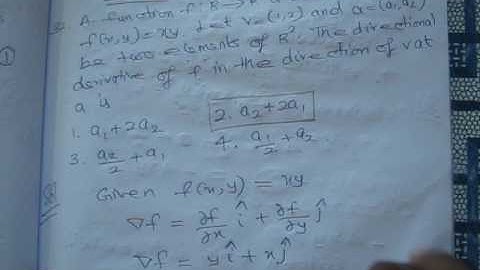 A function f: R² → R
f(x,y) = xy. Let v = (1,2) and a = (a₁,a₂)
be two elements of R². The directional
derivative of f in the direction of v at
a is
1. a₁ + 2a₂
2. a₂ + 2a₁
3. a₂/2 + a₁
4. a₁/2 + a₂.
Given f(x,y) = xy
∇f = ∂f/∂x î + ∂f/∂y ĵ
∇f = y î + x ĵ
①